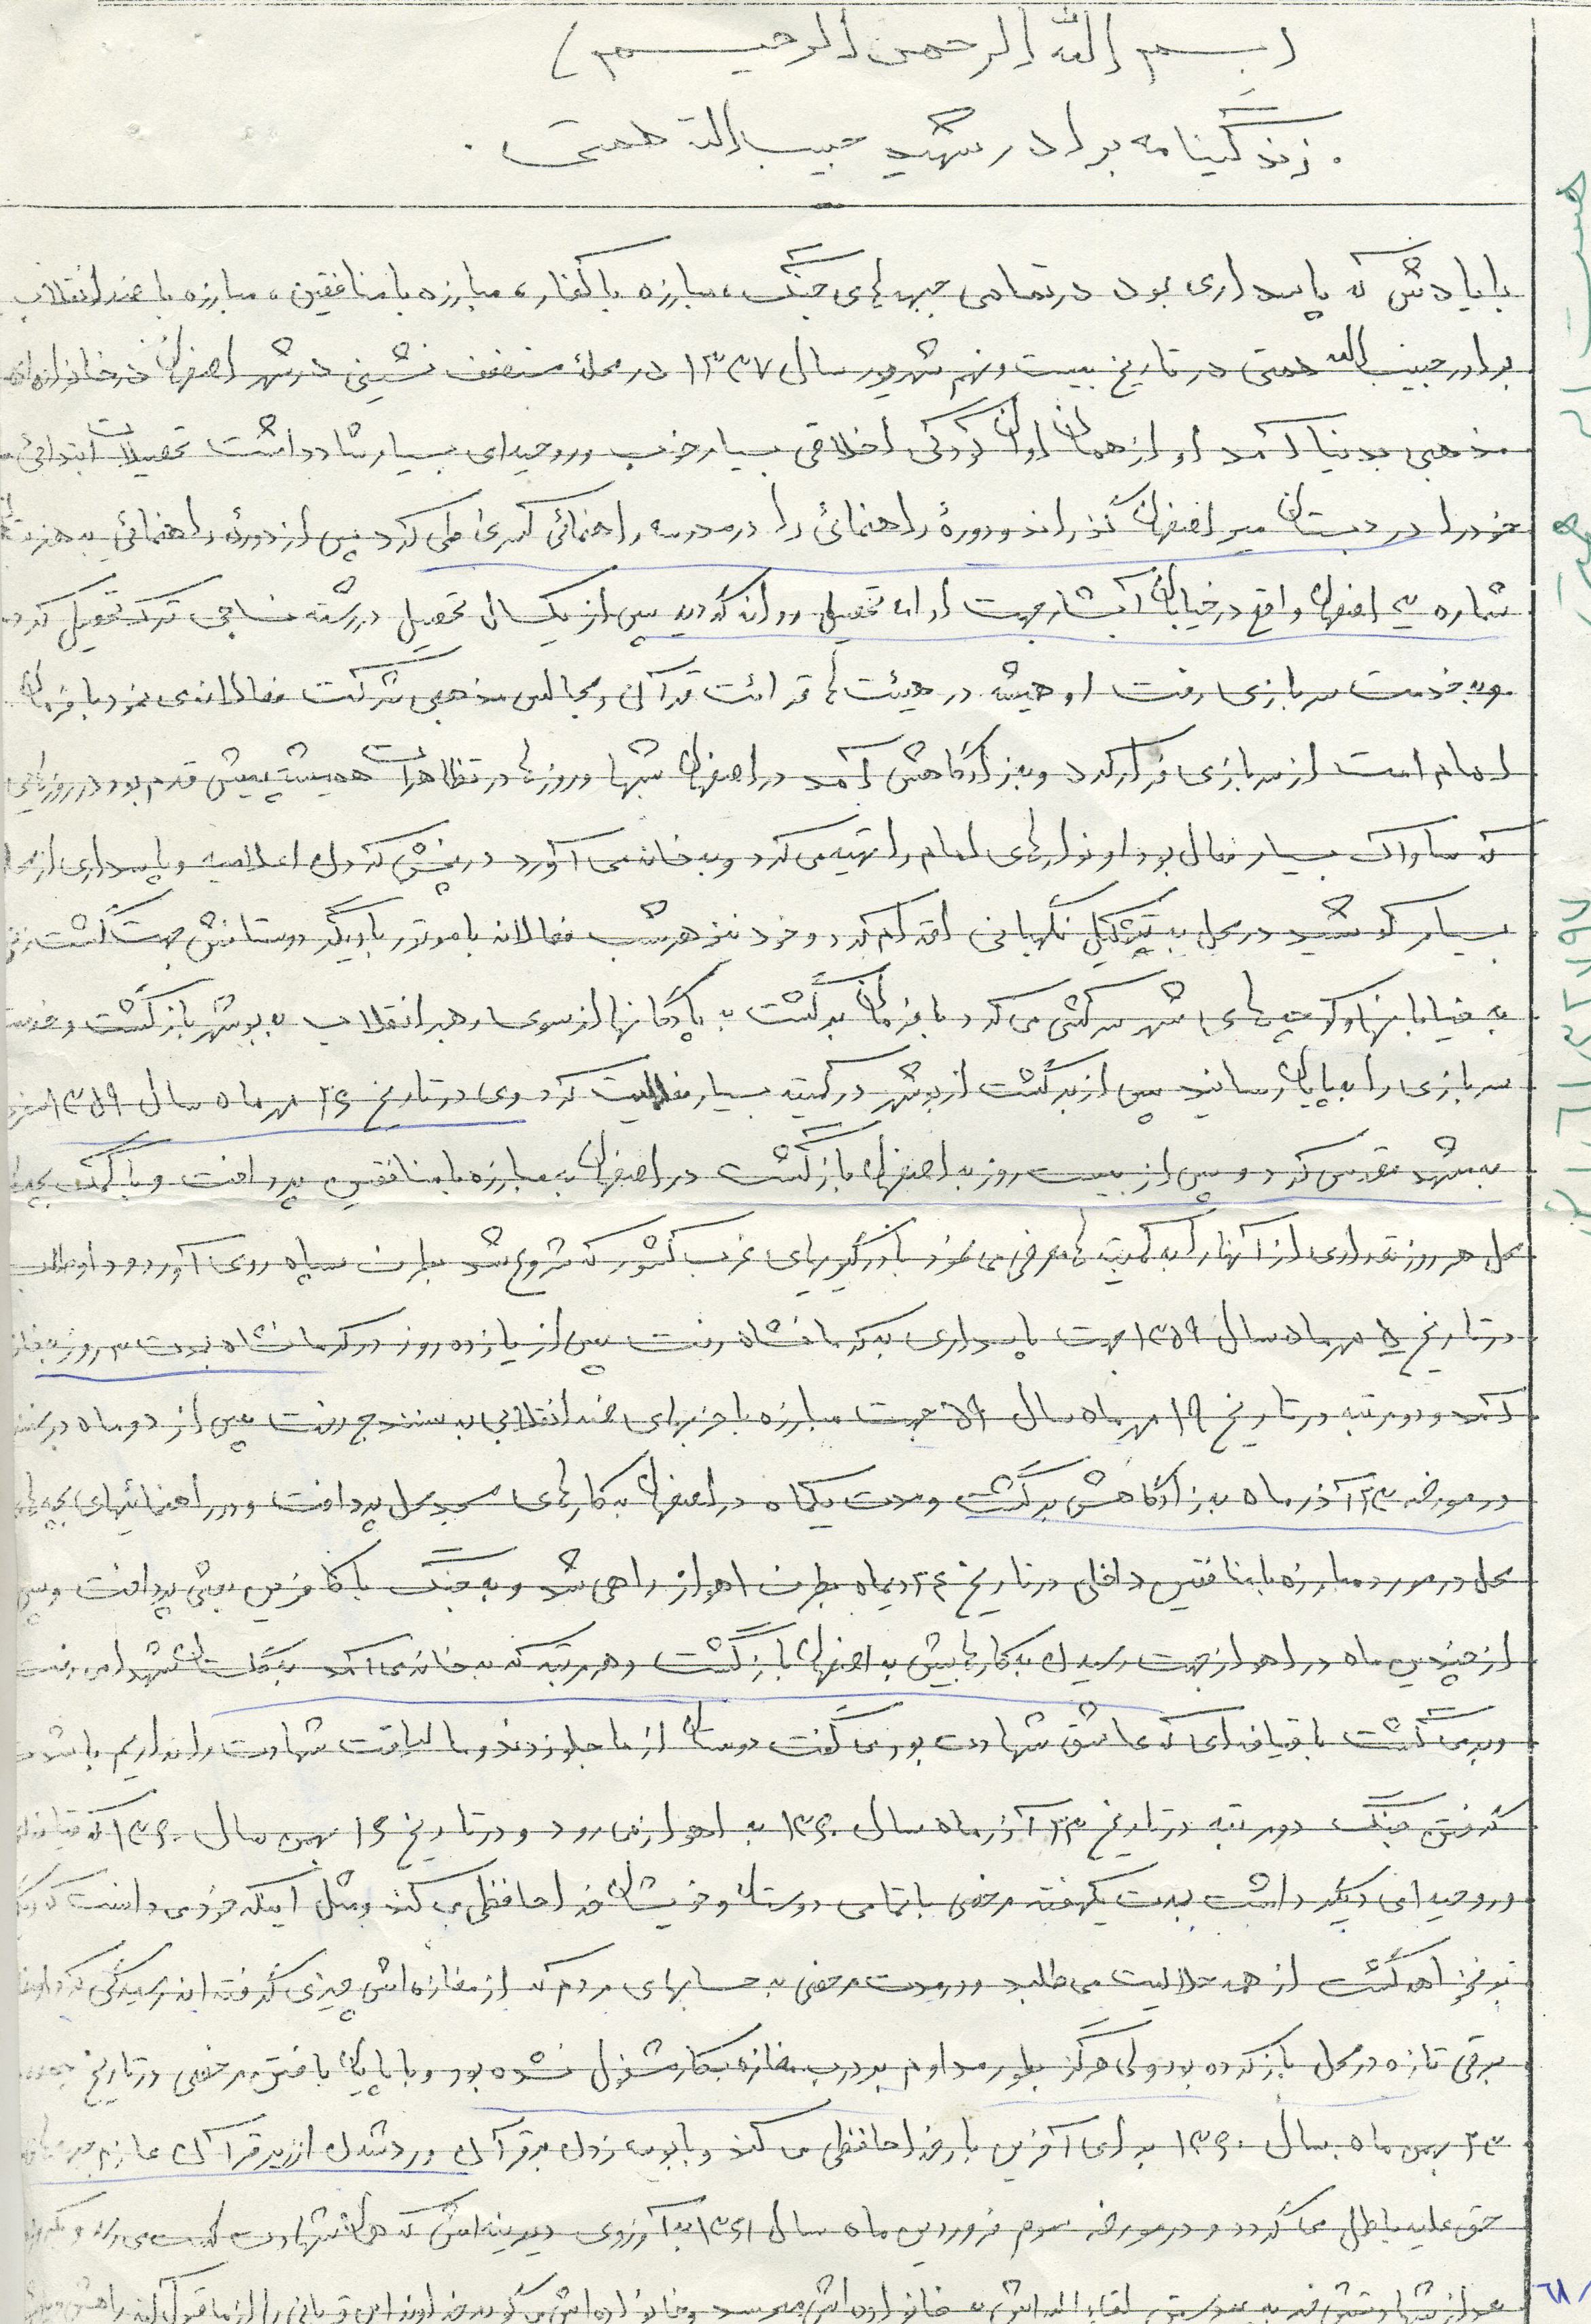 (بسم الله الرحمن الرحیم)
زندگینامه برادر شهید حبیب‌الله همتی
با یادش که پاسداری بود در تمامی جبهه‌های جنگ، مبارزه با کفار، مبارزه با منافقین، مبارزه با ضد انقلاب
برادر حبیب الله همتی در تاریخ بیست و نهم شهریور سال ۱۳۳۷ در محلهٔ مستضعف نشینی در شهر اصفهان در خانواده‌ای
مذهبی بدنیا آمد او از همان اوان کودکی اخلاقی بسیار خوب و روحیه‌ای بسیار شاد داشت تحصیلات ابتدائی
خود را در دبستان اصفهان گذراند و دورهٔ راهنمائی را در مدرسه راهنمائی کسری طی کرد پس از دورهٔ راهنمائی به
شماره ۳ اصفهان واقع در خیابان آبشار جهت ادامه تحصیل روانه گردید پس از یکسال تحصیل در رشته نساجی ترک تحصیل کرد
و به خدمت سربازی رفت او همیشه در هیئت‌ها قرائت قرآن و مجالس مذهبی شرکت فعالانه‌ی نمود با فرمان
امام امت از سربازی فرار کرد و به زادگاهش آمد در اصفهان شبها و روزها در تظاهرات همیشه پیش قدم بود در روزهایی
که ساواک بسیار فعال بود او نوارهای امام را تهیه می کرد و به خانه می آورد در پخش کردن اعلامیه و پاسداری از محل
بسیار کوشید در محل به تشکیل نگهبانی اقدام کرد و خود نیز هر شب فعالانه با موتور با دیگر دوستانش جهت گشت زنی
به خیابانها و کوچه‌های شهر سرکشی می کرد با فرمان برگشت به پادگانها از سوی رهبر انقلاب به بوشهر بازگشت و خدمت
سربازی را به پایان رسانید پس از برگشت از بوشهر در کمیته بسیار فعالیت کرد وی در تاریخ ۲۶ مهر ماه سال ۱۳۵۹
به مشهد مقدس کرد و پس از بیست روز به اصفهان بازگشت در اصفهان به مبارزه با منافقین پرداخت و با کمک بچه‌های
محل هر روز تعدادی از آنها را به کمیته‌ها معرفی می نمود با درگیریهای غرب کشور که شروع شد بطرف سپاه روی آورد و داوطلب
در تاریخ ۵ مهر ماه سال ۱۳۵۹ جهت پاسداری به کرمانشاه رفت پس از یازده روز در کرمانشاه بمدت ۳ روز به
آمد و دو مرتبه در تاریخ ۱۹ مهر ماه سال ۵۹ جهت مبارزه با حزبهای ضد انقلابی به سنندج رفت پس از دو ماه در
در مورخه ۲۳ آذر ماه به زادگاهش برگشت و مدت یکماه در اصفهان به کارهای مسجد محل پرداخت و در راهنمائیهای بچه‌های
محل در مورد مبارزه با منافقین داخلی در تاریخ ۲۴ دیماه بطرف اهواز راهی شد و به جنگ با کافرین بعثی پرداخت و پس
از چندین ماه در اهواز جهت رسیدن به کارهایش به اصفهان بازگشت و هر مرتبه که به خانه می آمد به گلستان شهدا می رفت
و برمی گشت با قیافه‌ای که عاشق شهادت بود می گفت دوستان از ما جلو زدند و ما لیاقت شهادت را نداریم با شدت
گرفتن جنگ دو مرتبه در تاریخ ۲۳ آذر ماه سال ۱۳۶۰ به اهواز می رود و در تاریخ ۱۶ بهمن سال ۱۳۶۰ که
و روحیه‌ای دیگر داشت بمدت یکهفته مرخصی با تمامی دوستان و خویشان خداحافظی می کند و مثل اینکه خود می دانست که دیگر
بر نخواهد گشت از همه حلالیت می طلبد و در مدت مرخصی به حسابهای مردم که از مغازه‌اش چیزی گرفته‌اند رسیدگی کرد
برقی تازه در محل باز کرده بود ولی هرگز بطور مداوم بر درب مغازه بکار مشغول نشده بود و با پایان یافتن مرخصی در تاریخ
۲۳ بهمن ماه سال ۱۳۶۰ برای آخرین بار خداحافظی می کند و با بوسه زدن بر قرآن و رد شدن از زیر قرآن عازم
حق علیه باطل می گردد و در مورخه سوم فروردین ماه سال ۱۳۶۱ به آرزوی دیرینه‌اش که همان شهادت است می رسد